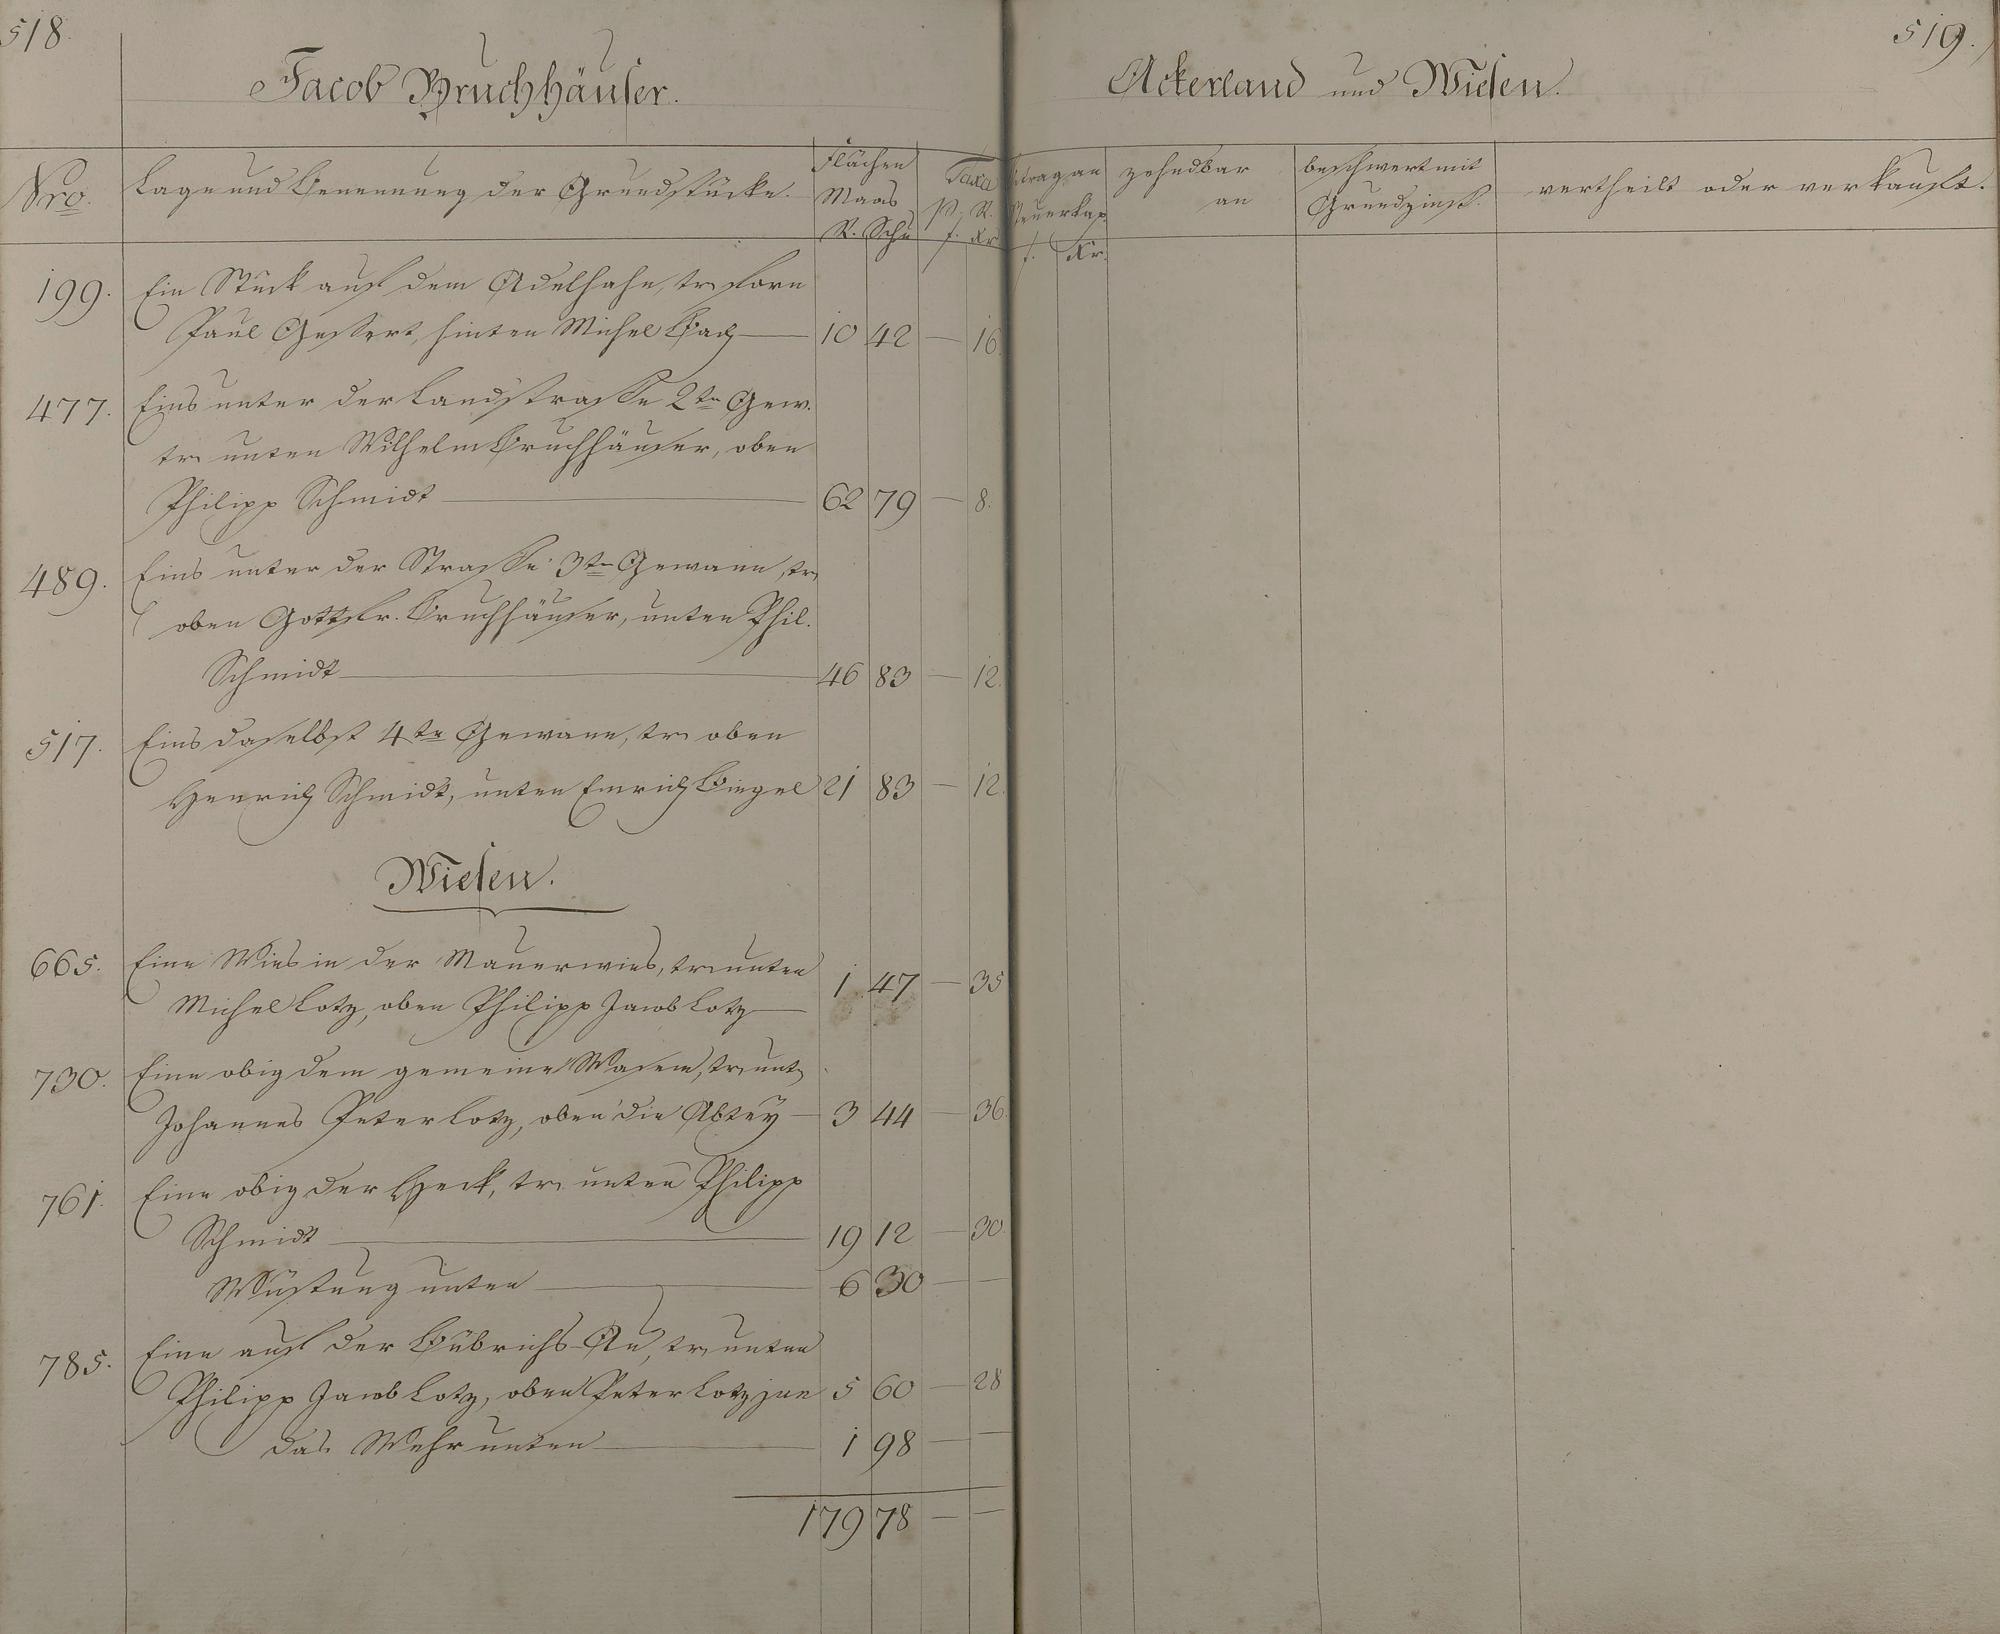 518.
Jacob Bruchhäuser.
Nro. Lage und Benennung der Grundstücke. Flächen Maas R. Schu Taxa p. R. f. Kr.
199. Ein Stück auf dem Adelhahn, tr. forn
Paul Gessert, hinten Michel Bach — 10 42 — 16.
477. Eins unter der Landstrasse 2te Gew.
tr. unten Wilhelm Bruchhäuser, oben
Philipp Schmidt — 62 79 — 8.
489. Eins unter der Strasse 3te Gewann, tr.
oben Gottfr. Bruchhäuser, unten Phil.
Schmidt — 46 83 — 12.
517. Eins daselbst 4te Gewann, tr. oben
Henrich Schmidt, unten Emrich Bingel 21 83 — 12.
Wiesen.
665. Eine Wies in der Mauerwies, tr. unten
Michel Lotz, oben Philipp Jacob Lotz — 1 47 — 35
730. Eine obig dem gemeine Wasem, tr. unt.
Johannes Peter Lotz, oben die Abtey — 3 44 — 36.
761. Eine obig der Heck, tr. unten Philipp
Schmidt — 19 12 — 30.
Wüstung unten — 6 30 — —
785. Eine auf der Bübrichs-Au, tr. unten
Philipp Jacob Lotz, oben Peter Lotz jun 5 60 — 28
das Wehr unten — 1 98 — —
179 78 — —
519.
Ackerland und Wiesen.
trag an Steuerkap. f. Kr. zehndbar an beschwert mit Grundzinsß. vertheilt oder verkauft.